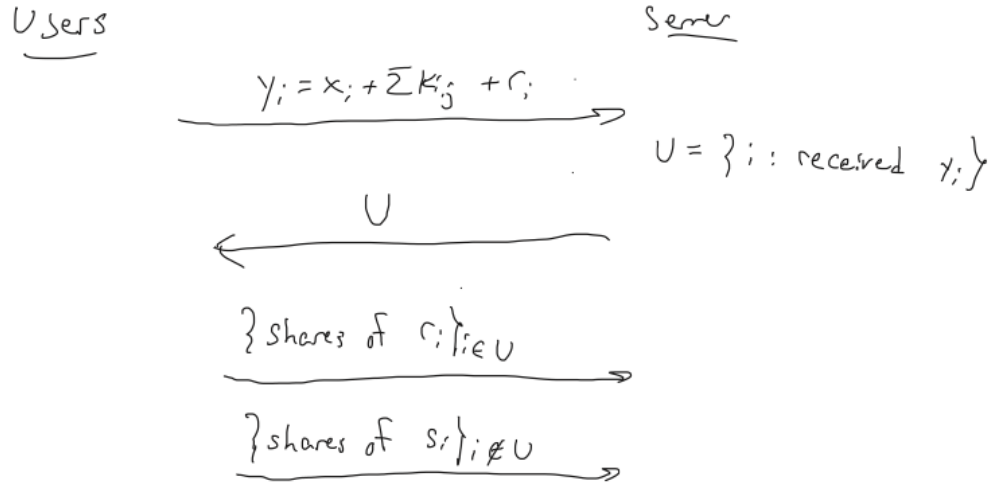 Users
Server
y_i = x_i + Σ k_ij + r_i
U = {i : received y_i}
U
{shares of r_i}_i∈U
{shares of s_i}_i∉U